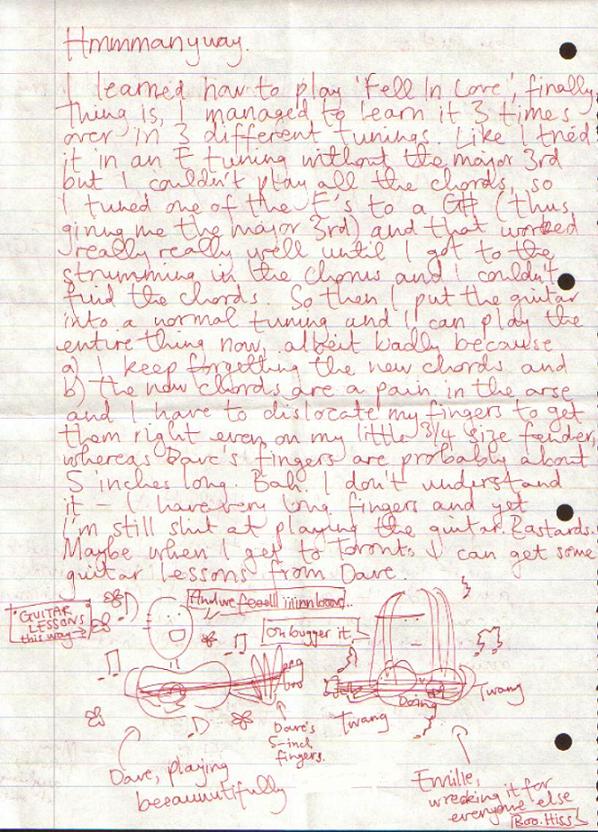 Hmmmanyway.
I learned how to play 'Fell In Love', finally
Thing is, I managed to learn it 3 times
over in 3 different tunings. Like I tried
it in an E tuning without the major 3rd
but I couldn't play all the chords, so
I tuned one of the E's to a G# (thus
giving me the major 3rd) and that worked
really really well until I got to the
strumming in the chorus and I couldn't
find the chords. So then I put the guitar
into a normal tuning and I can play the
entire thing now, albeit badly because
a) I keep forgetting the new chords and
b) the new chords are a pain in the arse
and I have to dislocate my fingers to get
them right even on my little 3/4 size fender,
whereas Dave's fingers are probably about
5 inches long. Bah. I don't understand
it - I have very long fingers and yet
I'm still shit at playing the guitar. Bastards.
Maybe when I get to Toronto I can get some
guitar lessons from Dave.
GUITAR
LESSONS
this way →
And we feeelll iiinn love...
Oh bugger it,
Dave's
5-inch
fingers.
Twang
Doing
Twang
Dave, playing
beeauuutifully
Emilie,
wrecking it for
everyone else
Boo. Hiss